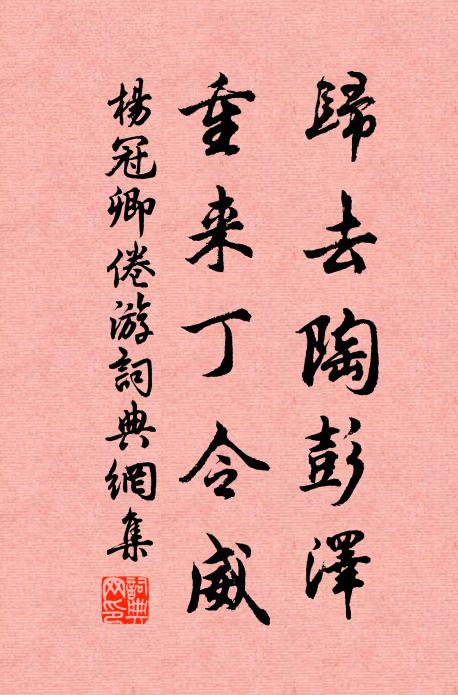 歸去陶彭澤
重来丁令威
楊冠卿倦游詞典網集
詞典网印